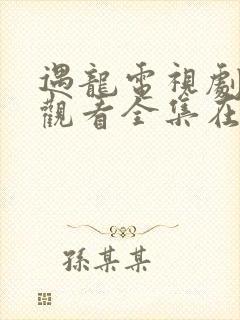 遇龍電視劇
觀看全集在
孫某某